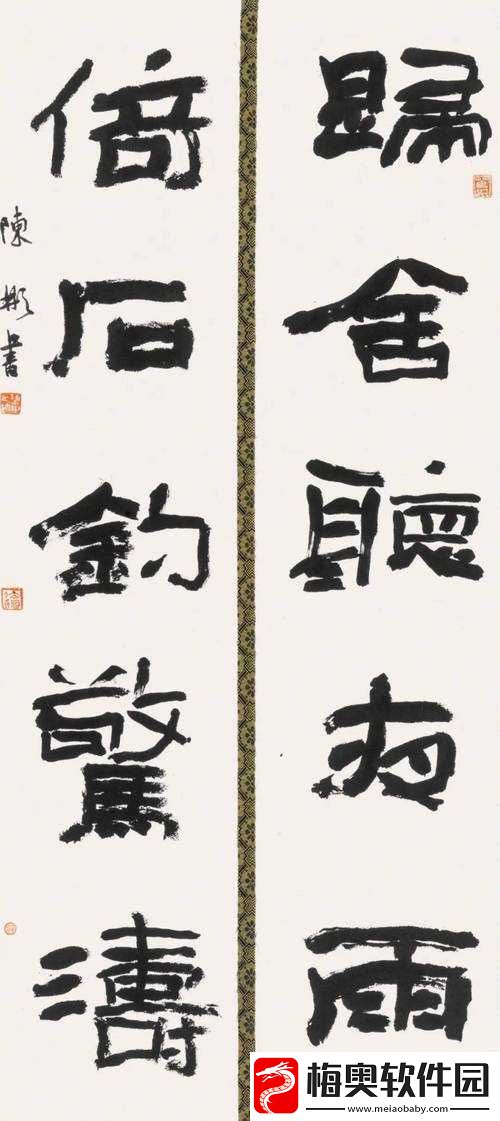 歸舍聽夜雨
倚石釣驚濤
陳彬書
梅奥软件园
www.meiaobaby.com